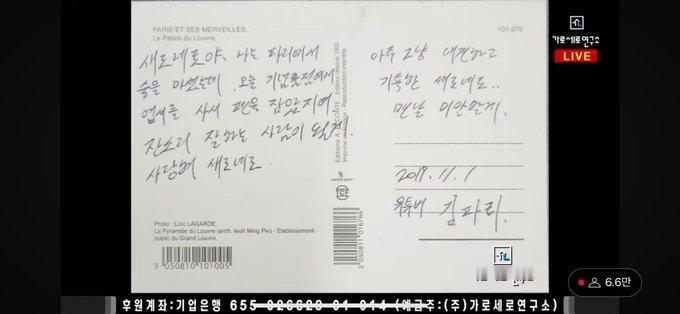 PARIS ET SES MERVEILLES...
Le Palais du Louvre.
101.676
가로세로연구소
LIVE
새로네로야, 나는 파리에서
술을 마셨는데 오늘 기념품점에서
엽서를 사서 펜을 잡았지여
잔소리 잘하는 사람이 될게!
사랑해 새로네로.
아주 그냥 대견하고
기특한 새로네로..
맨날 미안할게.
2019. 11. 1
유튜버 김파리.
Editions A. LECONTE - Editeur depuis 1920
Imprimé en France - Reproduction interdite
TCF
Photo : Loïc LAGARDE.
La Pyramide du Louvre (arch. Ieoh Ming Pei) - Etablissement
public du Grand Louvre.
3 050810 101005
3 050811 016766
6.6만
후원계좌:기업은행 655-028628-01-014 (예금주:(주)가로세로연구소)